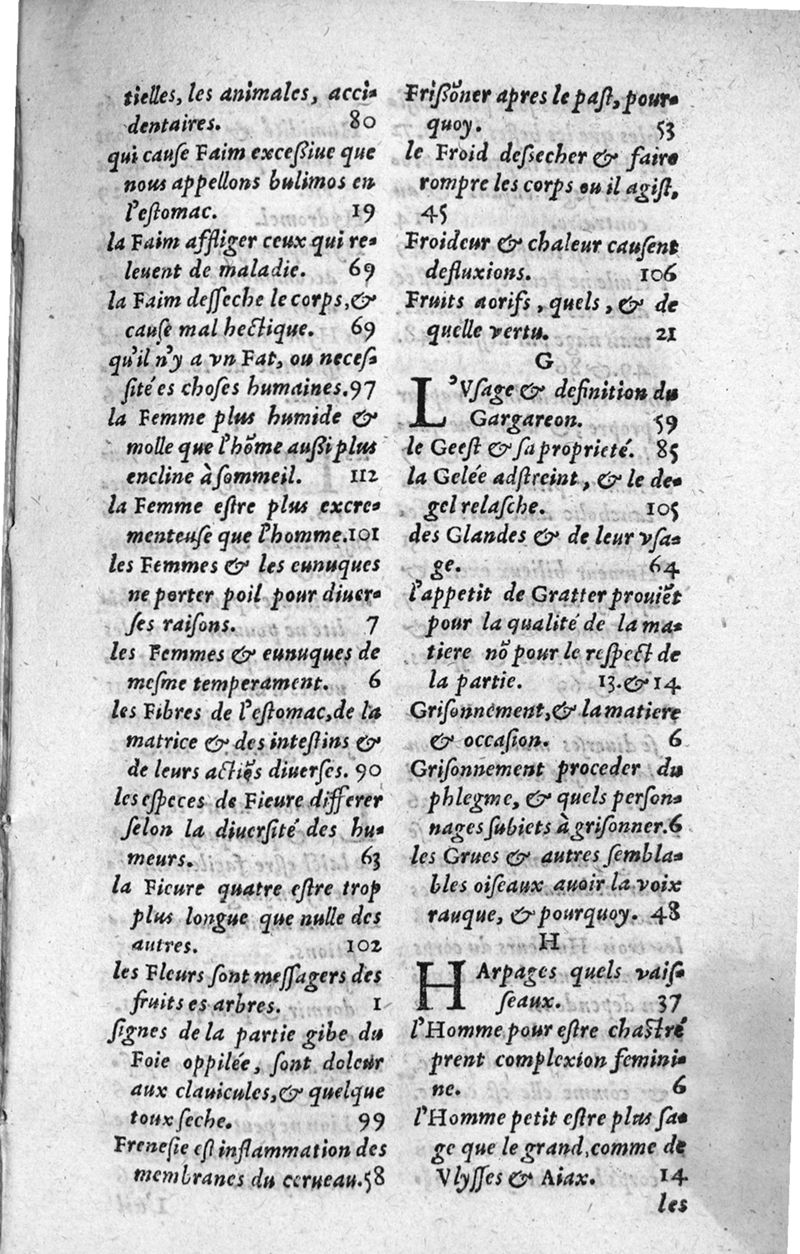 tielles, les animales, acci-
dentaires. 80
qui cauſe Faim exceſſiue que
nous appellons bulimos en
l'eſtomac. 19
la Faim affliger ceux qui re-
leuent de maladie. 69
la Faim deſſeche le corps, &
cauſe mal hectique. 69
qu'il n'y a vn Fat, ou neceſ-
ſité es choſes humaines. 97
la Femme plus humide &
molle que l'hõme auſſi plus
encline à ſommeil. 112
la Femme eſtre plus excre-
menteuſe que l'homme. 101
les Femmes & les eunuques
ne porter poil pour diuer-
ſes raiſons. 7
les Femmes & eunuques de
meſme temperament. 6
les Fibres de l'eſtomac, de la
matrice & des inteſtins &
de leurs actiõs diuerſes. 90
les eſpeces de Fieure differer
ſelon la diuerſité des hu-
meurs. 63
la Fieure quatre eſtre trop
plus longue que nulle des
autres. 102
les Fleurs ſont meſſagers des
fruits es arbres. 1
ſignes de la partie gibe du
Foie oppilée, ſont doleur
aux clauicules, & quelque
toux ſeche. 99
Freneſie eſt inflammation des
membranes du cerueau. 58
Friſſõner apres le paſt, pour-
quoy. 53
le Froid deſſecher & faire
rompre les corps ou il agiſt,
45
Froideur & chaleur cauſent
defluxions. 106
Fruits aorifs, quels, & de
quelle vertu. 21
G
L'Vſage & definition du
Gargareon. 59
le Geeſt & ſa proprieté. 85
la Gelée adſtreint, & le de-
gel relaſche. 105
des Glandes & de leur vſa-
ge. 64
l'appetit de Gratter prouiẽt
pour la qualité de la ma-
tiere nõ pour le reſpect de
la partie. 13. & 14
Griſonnement, & la matiere
& occaſion. 6
Griſonnement proceder du
phlegme, & quels perſon-
nages ſubiets à griſonner. 6
les Grues & autres ſembla-
bles oiſeaux auoir la voix
rauque, & pourquoy. 48
H
HArpages quels vaiſ-
ſeaux. 37
l'Homme pour eſtre chaſtré
prent complexion femini-
ne. 6
l'Homme petit eſtre plus ſa-
ge que le grand, comme de
Vlyſſes & Aiax. 14
les